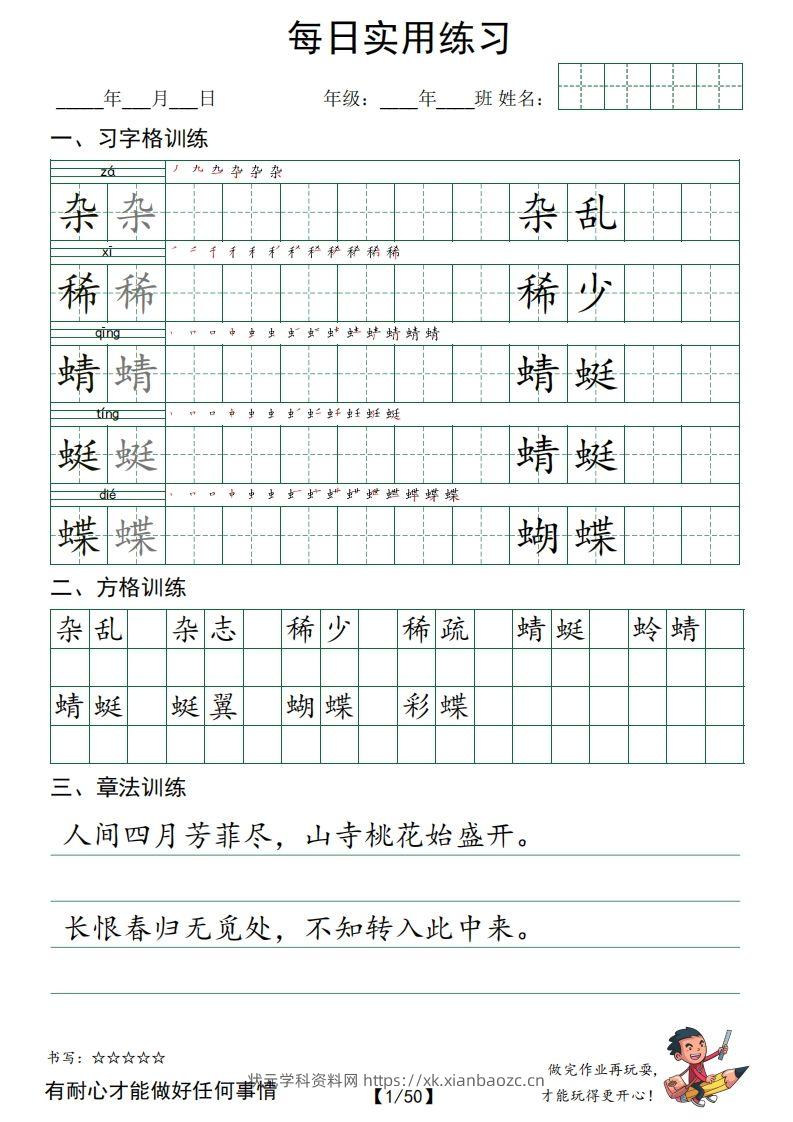 每日实用练习
_____年___月___日 年级：____年____班 姓名：
一、习字格训练
zá
杂 杂 杂 乱
xī
稀 稀 稀 少
qīng
蜻 蜻 蜻 蜓
tíng
蜓 蜓 蜻 蜓
dié
蝶 蝶 蝴 蝶
二、方格训练
杂 乱 杂 志 稀 少 稀 疏 蜻 蜓 蛉 蜻
蜻 蜓 蜓 翼 蝴 蝶 彩 蝶
三、章法训练
人间四月芳菲尽，山寺桃花始盛开。
长恨春归无觅处，不知转入此中来。
书写：☆☆☆☆☆
有耐心才能做好任何事情
状元学科资料网 https://xk.xianbaozc.cn
【1/50】
做完作业再玩耍，
才能玩得更开心！